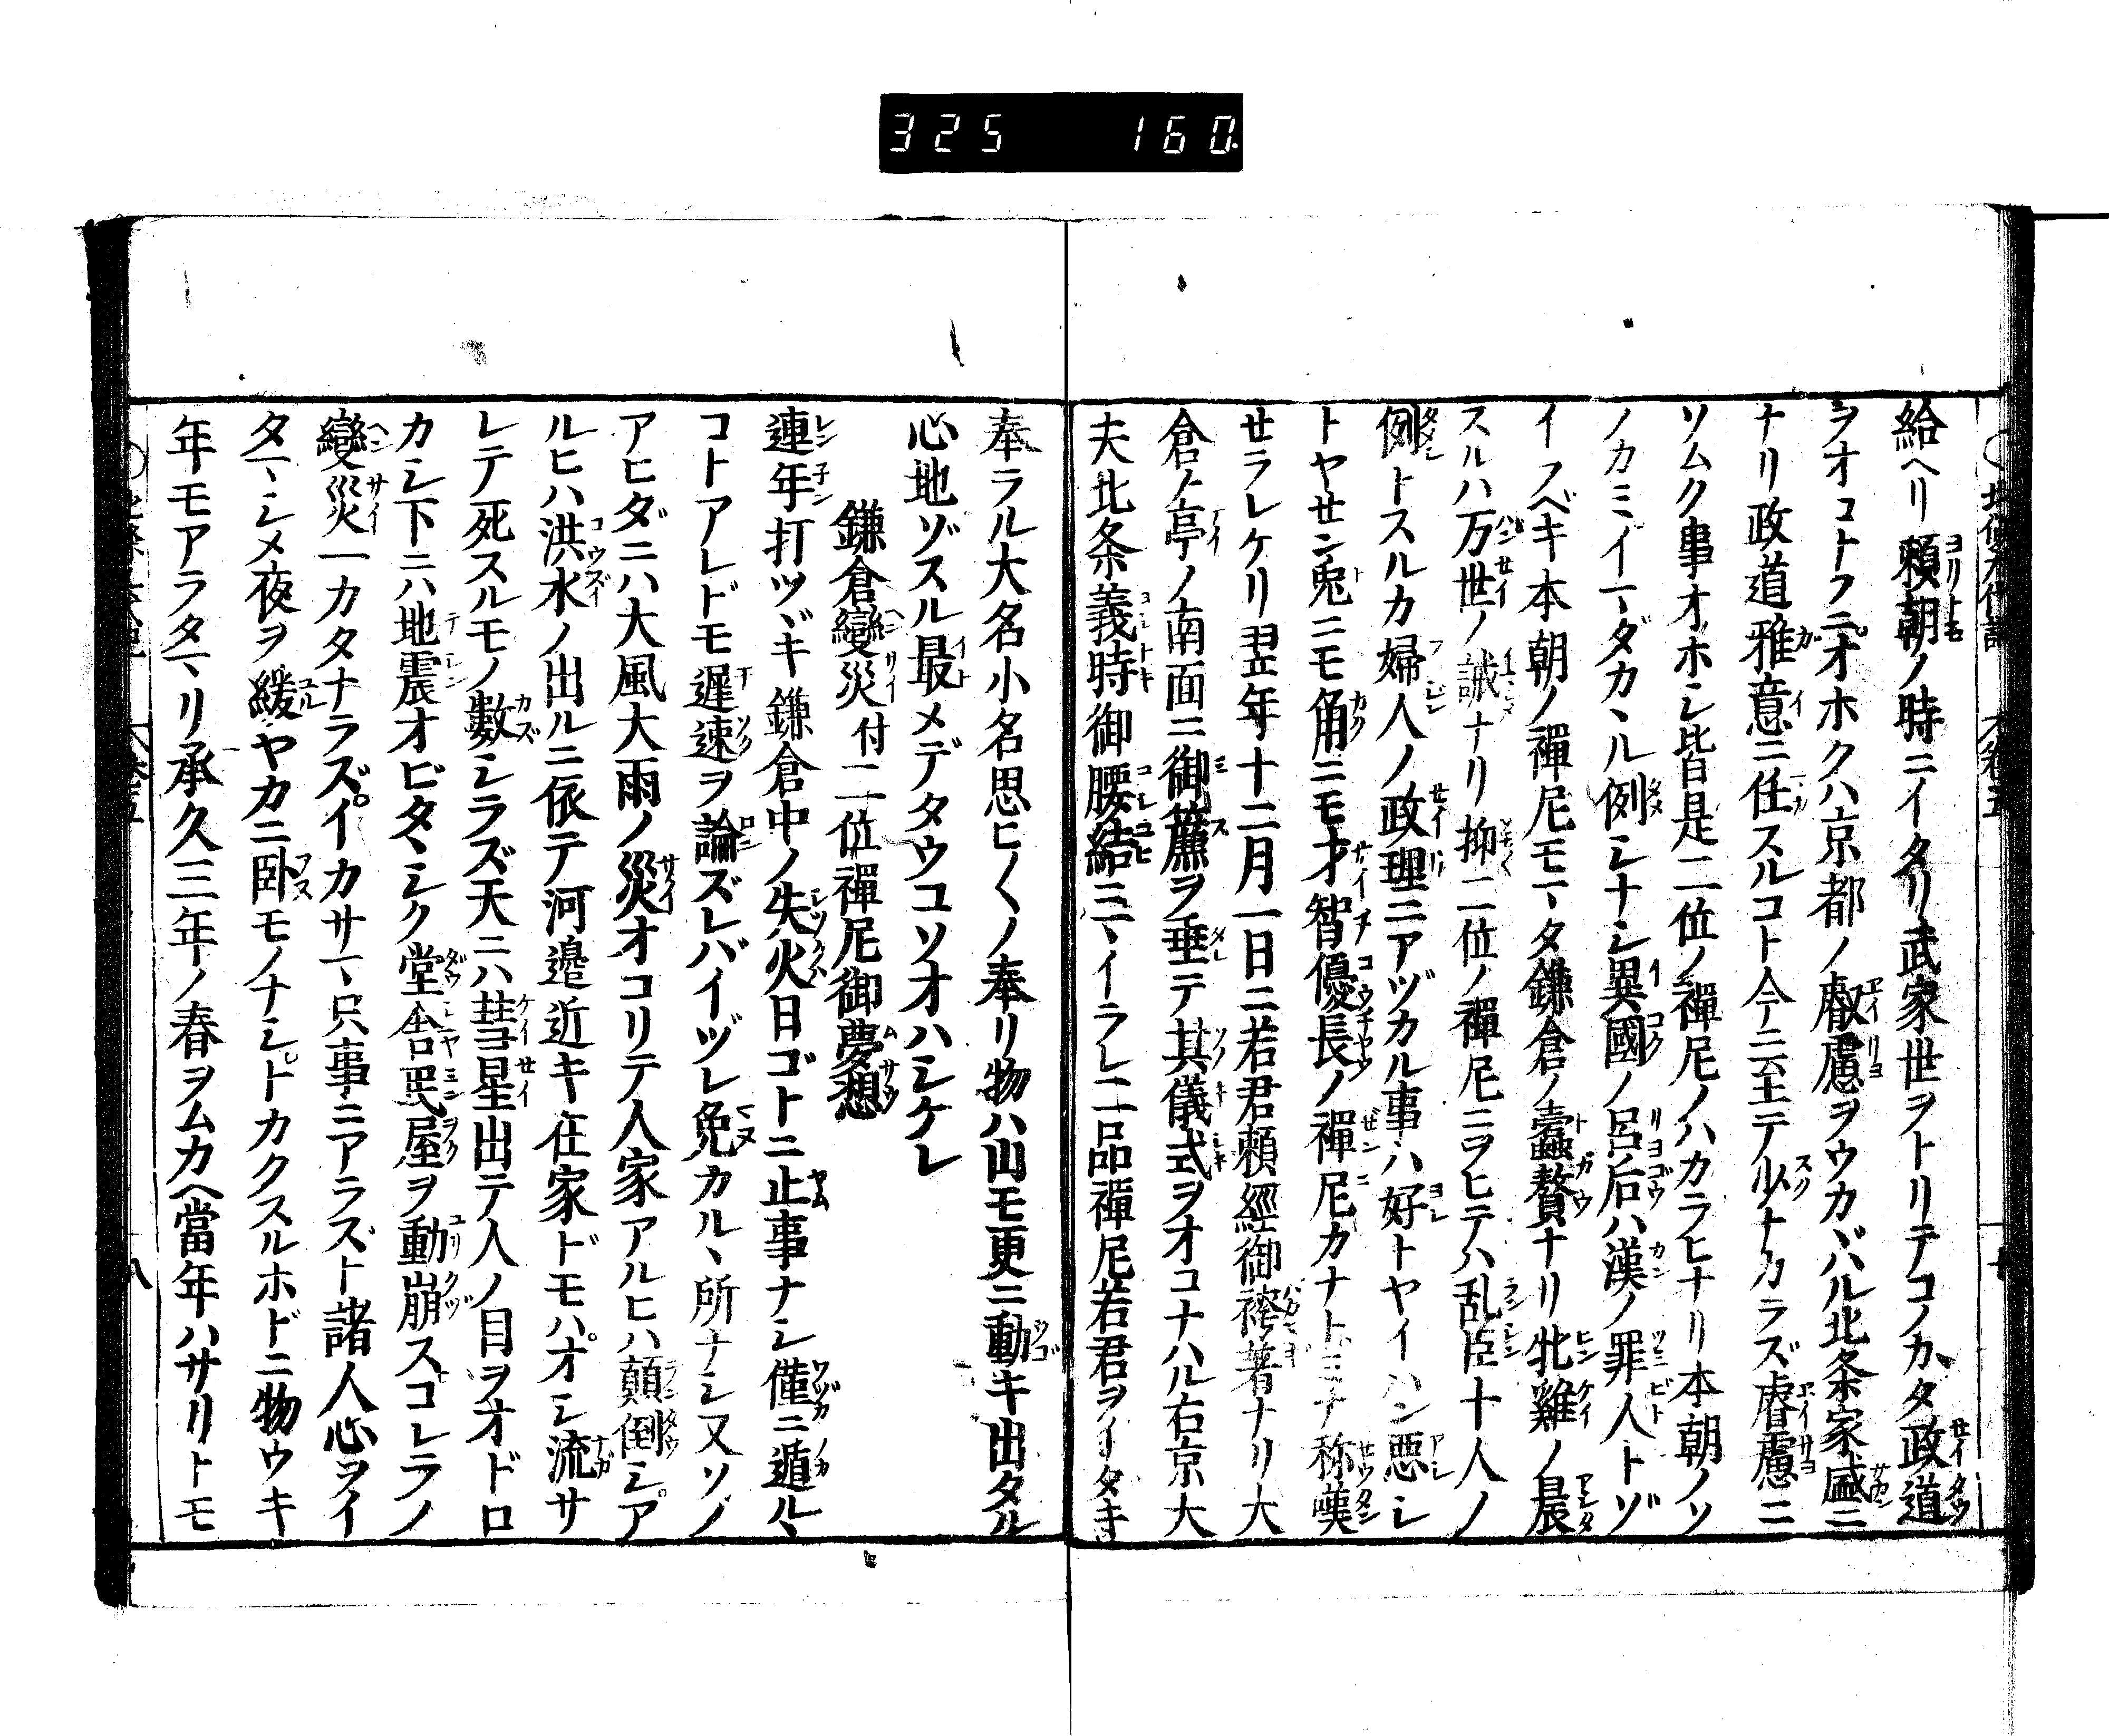 325 160.
給ヘリ頼朝ノ時ニイタリ武家世ヲトリテコノカタ政道
ヲオコトフニオホクハ京都ノ叡慮ヲウカヾハル北条家盛ニ
ナリ政道雅意ニ任スルコト今ニ至テ少ナカラズ睿慮ニ
ソムク事オホシ皆是二位ノ禪尼ノハカラヒナリ本朝ノソ
ノカミイマダカヽル例シナシ異國ノ呂后ハ漢ノ罪人トゾ
イフベキ本朝ノ禪尼モマタ鎌倉ノ蠧贅ナリ牝雞ノ晨
スルハ万世ノ誡ナリ抑二位ノ禪尼ニヲヒテハ乱臣十人ノ
例トスルカ婦人ノ政理ニアヅカル事ハ好トヤイハン悪シ
トヤセン兎ニモ角ニモ才智優長ノ禪尼カナトミナ称嘆
セラレケリ翌年十二月一日ニ若君頼經御袴著ナリ大
倉ノ亭ノ南面ニ御簾ヲ垂テ其儀式ヲオコナハル右京大
夫北条義時御腰結ニマイラレ二品禪尼若君ヲイダキ
奉ラル大名小名思ヒ〱ノ奉リ物ハ山モ更ニ動キ出タル
心地ゾスル最メデタウコソオハシケレ
鎌倉變災付二位禪尼御夢想
連年打ツヾキ鎌倉中ノ失火日ゴトニ止事ナシ僅ニ遁ルヽ
コトアレドモ遲速ヲ論ズレバイヅレ免カルヽ所ナシ又ソノ
アヒダニハ大風大雨ノ災オコリテ人家アルヒハ顛倒シア
ルヒハ洪水ノ出ルニ依テ河邉近キ在家ドモハオシ流サ
レテ死スルモノ數シラズ天ニハ彗星出テ人ノ目ヲオドロ
カシ下ニハ地震オビタヽシク堂舎民屋ヲ動崩スコレラノ
變災一カタナラズイカサマ只事ニアラズト諸人心ヲイ
タマシメ夜ヲ緩ヤカニ臥モノナシトカクスルホドニ物ウキ
年モアラタマリ承久三年ノ春ヲムカヘ當年ハサリトモ